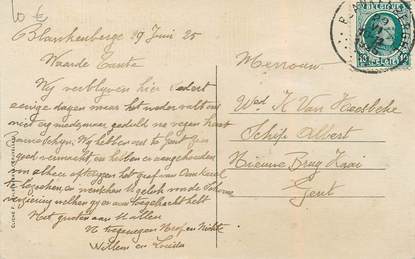 10 €
Blankenberge 29 Juni 25
Waarde Tante
Wij verblijven hier sedert
eenige dagen maar het weder valt ons
niet erg mede, maar geduld na regen komt
zonneschijn. Wij hebben ons te Gent
goed vermaakt, en hebben er aangehouden
om het graf van Oom Karel
te bezoeken, en wenschen U geluk voor de schoone
versiering welke gij er aan toegebracht hebt.
Veel groeten aan U allen
U toegenegen Neef en Nichte
Willem en Louisa
Mevrouw
Wed. K Van Heesbeke
Schip Albert
Nieuwe Brug Kaai
Gent
BELGIQUE